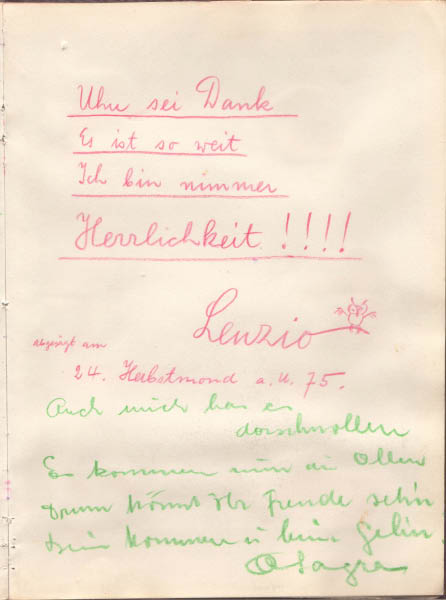 Uhu sei Dank
Es ist so weit
Ich bin nimmer
Herrlichkeit !!!!
Lenzio
Abgesägt am
24. Herbstmond a. U. 75.
Auch mich hat es
Es kommen nun die Ollen
Drum könnt Ihr Freude sehn
beim kommen u beim